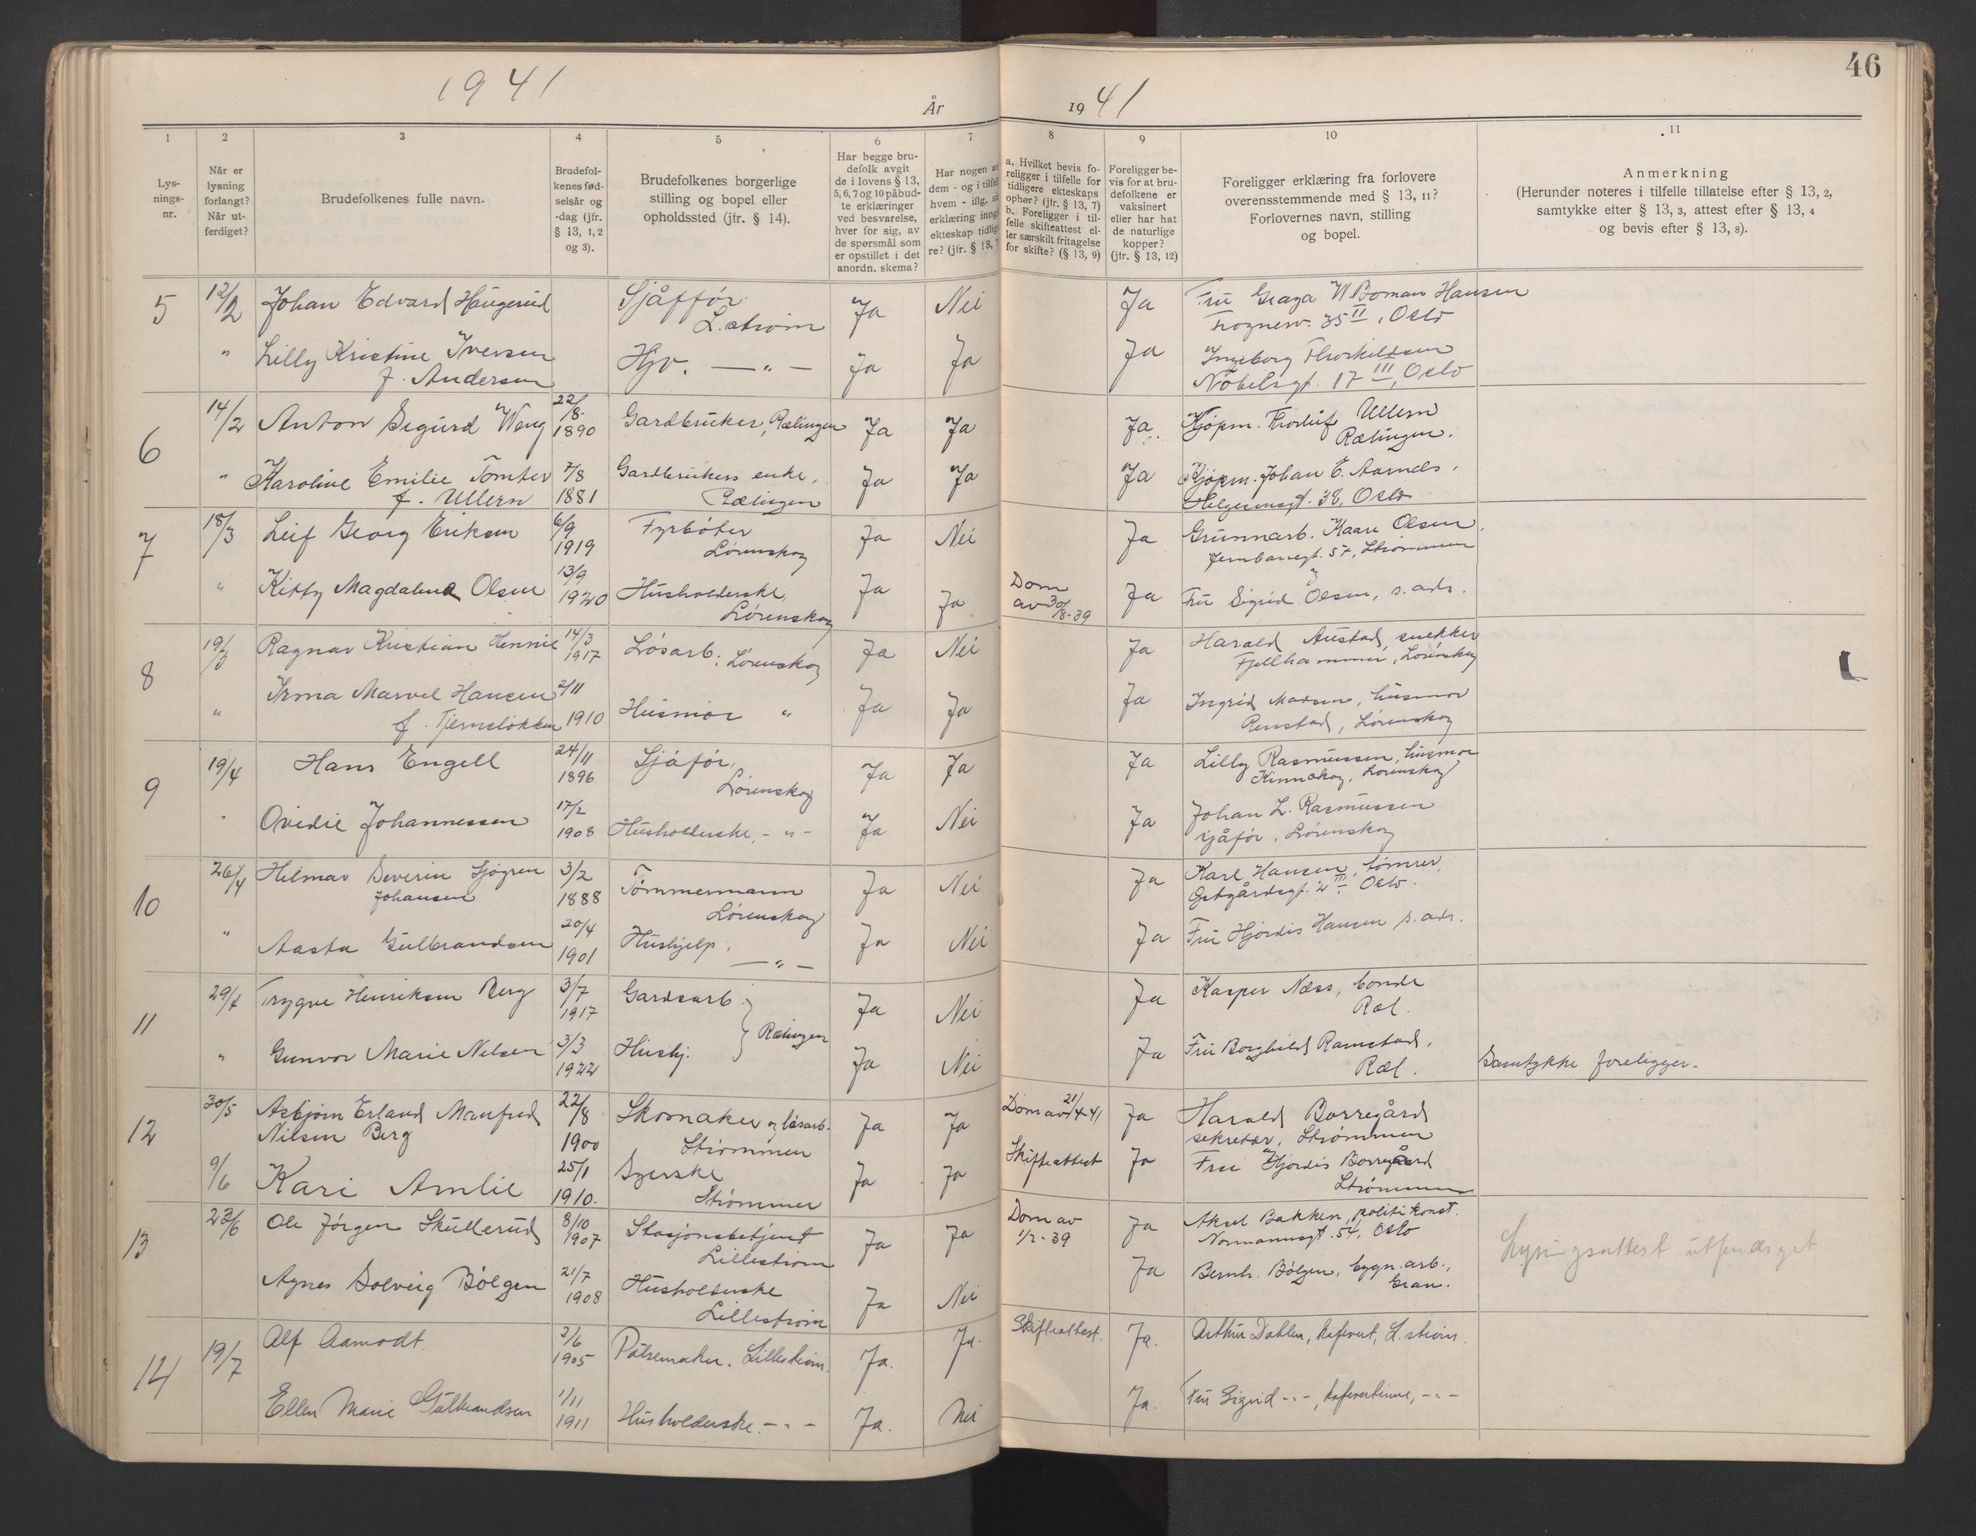 1941
År
1941
46
1
2
3
4
5
6
7
8
9
10
11
Lysnings-
nr.
Når er
lysning
forlangt?
Når ut-
ferdiget?
Brudefolkenes fulle navn.
Brudefol-
kenes fød-
selsår og
-dag (jfr.
§ 13, 1, 2
og 3).
Brudefolkenes borgerlige
stilling og bopel eller
opholdssted (jfr. § 14).
Har begge bru-
defolk avgit
de i lovens § 13,
5, 6, 7 og 10 påbud-
te erklæringer
ved besvarelse,
hver for sig, av
de spørsmål som
er opstillet i det
anordn. skema?
Har nogen av
dem - og i tilfelle
hvem - iflg. sin
erklæring inngått
ekteskap tidlige-
re? (jfr. § 13, 7)
a. Hvilket bevis fo-
religger i tilfelle for
tidligere ekteskaps
ophør? (jfr. § 13, 7)
b. Foreligger i til-
felle skifteattest el-
ler særskilt fritagelse
for skifte? (§ 13, 9)
Foreligger be-
vis for at bru-
defolkene er
vaksinert
eller har hat
de naturlige
kopper?
(jfr. § 13, 12)
Foreligger erklæring fra forlovere
overensstemmende med § 13, 11?
Forlovernes navn, stilling
og bopel.
Anmerkning
(Herunder noteres i tilfelle tillatelse efter § 13, 2,
samtykke efter § 13, 3, attest efter § 13, 4
og bevis efter § 13, 8).
5 12/2 Johan Edvard Haugerud Sjåffør L.strøm Ja Nei Ja Fru W. Boman Hansen
Frognerv. 35 II, Oslo
" Lilly Kristine Iversen Hjv. — " — Ja Ja Ja Ingeborg Thorkildsen
f. Andersen Nobelsgt. 17 III, Oslo
6 14/2 Anton Sigurd Weng 22/8. 1890 Gardbruker, Rælingen Ja Ja Ja. Kjøpm. Thorleif Ullern
Rælingen.
" Karoline Emilie Tomter 7/8 1881 Gardbrukers enke, Ja Ja Ja Kjøpm. Johan E. Aarnes,
f. Ullern Rælingen Helgesensgt. 38, Oslo
7 18/3 Leif Georg Eriksen 6/9 1919 Fyrbøter Ja Nei Ja Grunnarb. Kaare Olsen,
Lørenskog Jernbanegt. 57, Strømmen
" Kitty Magdalena Olsen 13/9 1920 Husholderske, Ja Ja Dom Ja Fru Sigrid Olsen, s. adr.
Lørenskog av 30/8-39
8 19/3 Ragnar Kristian Hennie 14/3 1917 Løsarb. Lørenskog Ja Nei Ja Harald Austad, snekker
Fjellhammer, Lørenskog
" Irma Marvel Hansen 2/11 1910 Husmor " Ja Ja Ja Ingrid Madsen, husmor
f. Tjernsløkken Lørenskog
9 19/4 Hans Engell 24/11 1896 Sjåfør, Ja Ja Ja Lilly Rasmussen, husmor
Lørenskog Lørenskog
" Ovidie Johannessen 17/2 1908 Husholderske, - " - Ja Nei Ja Johan L. Rasmussen
sjåfør, Lørenskog
10 26/4 Hilmar Severin Sjøgren 3/2 1888 Tømmermann Ja Nei Ja Karl Hansen, tømrer,
Johansen Lørenskog Oslo.
" Aasta Gulbrandsen 20/4 1901 Hushjelp, — " — Ja Nei Ja Fru Hjørdis Hansen s. adr.
11 29/4 Trygve Henriksen Berg 3/7 1917 Gardsarb. Rælingen Ja Nei Ja Kasper Næss, bonde
Ræl.
" Gunvor Marie Nilsen 3/3 1922 Hushj. Ja Nei Ja Fru Borghild Ramstad, Samtykke foreligger.
Ræl.
12 30/5 Asbjørn Erland Manfred 22/8 1900 Skomaker og løsarb. Ja Ja Dom av 21/4-41 Ja Harald Borregård
Nilsen Berg Strømmen sekretær, Strømmen
9/6 Kari Amlie 25/1 1910. Syerske Ja Ja Skifteattest Ja Fru Hjørdis Borregård
Strømmen Strømmen
13 23/6 Ole Jørgen Skullerud 8/10 1907 Stasjonsbetjent Ja Ja Dom av Ja Aksel Bakken, politikonst.
Lillestrøm 1/2-39 Normannsgt. 54, Oslo
Agnes Solveig Bølgen 21/7 1908 Husholderske Ja Nei Ja Bernh. Bølgen, bygn.arb.,
Lillestrøm Gran.
Lysningsattest utferdiget
14 19/7 Alf Aamodt. 2/6 1905 Pølsemaker. Lillestrøm. Ja. Ja. Skifteattest. Ja. Arthur Dahlen, hefvert, L.strøm.
Ellen Marie Gulbrandsen 1/11 1911 Husholderske. - " - Ja. Nei Ja. Fru Sigrid - " -, - " -